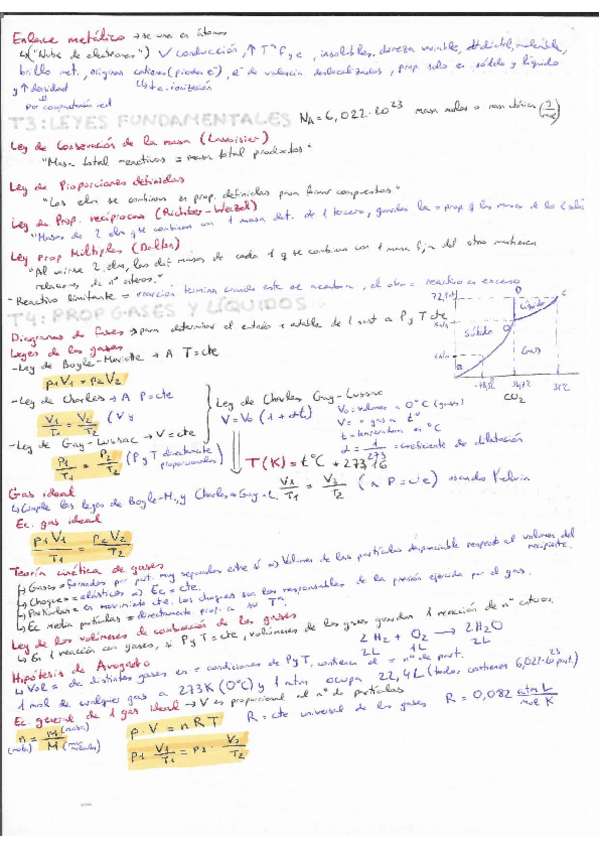 Enlace metálico → se una en átomos
↳ ("Nube de electrones") ✓ conducción, ↑ Tª f y e, insolubles, dureza variable, dúctil, maleable,
brillo met., origina cationes (pierden e⁻), e⁻ de valencia deslocalizados, prop. solo en sólido y líquido
y ↑ densidad ↳ ↓ e. ionización
Por compactación red
T3: LEYES FUNDAMENTALES N_A = 6,022·10²³ masa molar o masa (g/mol)
Ley de Conservación de la masa (Lavoisier)
"Masa total reactivos = masa total productos"
Ley de Proporciones definidas
"Los elem se combinan en prop. definidas para formar compuestos"
Ley de Prop. recíprocas (Richter-Wenzel)
"Masas de 2 elm q se combinan con 1 masa det. de 1 tercero, guardan la = prop q las masas de los 2
Ley Prop Múltiples (Dalton)
"Al unirse 2 elm, las dif masas de cada 1 q se combina con 1 masa fija del otro mantienen
relaciones de nº enteros."
- Reactivo limitante = reacción termina cuando este se acaba, el otro = reactivo en exceso
T4: PROP GASES Y LÍQUIDOS
Diagramas de fases → para determinar el estado + estable de 1 sust a P y T cte
Leyes de los gases
- Ley de Boyle-Mariotte → A T=cte
P1V1 = P2V2
- Ley de Charles → A P=cte
V1/T1 = V2/T2 (V y
- Ley de Gay-Lussac → V=cte
P1/T1 = P2/T2 (P y T directamente proporcionales)
Ley de Charles Gay-Lussac
V=V₀ (1+αt)
V₀ = volumen a 0°C (gases)
V = " a tº
t = temperatura en °C
α = 1/273 = coeficiente de dilatación
T(K) = t°C + 273,16
V1/T1 = V2/T2 (A P=cte) usando Kelvin
Sólido
Líquido
Gas
CO₂
Gas ideal
↳ Cumple las leyes de Boyle-M., y Charles-Gay-L.
Ec. gas ideal
P1V1/T1 = P2V2/T2
Teoría cinética de gases
↳ Gases = formados por part. muy separadas entre sí ⇒ Volumen de las partículas despreciable respecto al volumen del recipiente.
↳ Choques = elásticos ⇒ Ec = cte.
↳ Partículas = en movimiento cte. Los choques son los responsables de la presión ejercida por el gas.
↳ Ec media partículas = directamente prop. a su Tª
Ley de los volúmenes de combinación de los gases
↳ En 1 reacción con gases, si P y T = cte, volúmenes de los gases guardan 1 reacción de nº enteros.
2H₂ + O₂ → 2H₂O
2L 1L 2L
Hipótesis de Avogadro
↳ Vol = de distintos gases en = condiciones de P y T, contienen el = nº de part.
1 mol de cualquier gas a 273K (0°C) y 1 atm ocupa 22,4L (todos contienen 6,022·10²³ part.)
Ec. general de 1 gas ideal → V es proporcional al nº de partículas
n = m/M (moles) (masa) P·V = nRT R = cte universal de los gases R = 0,082 atm L/mol K
P1 · V1/T1 = P2 · V2/T2